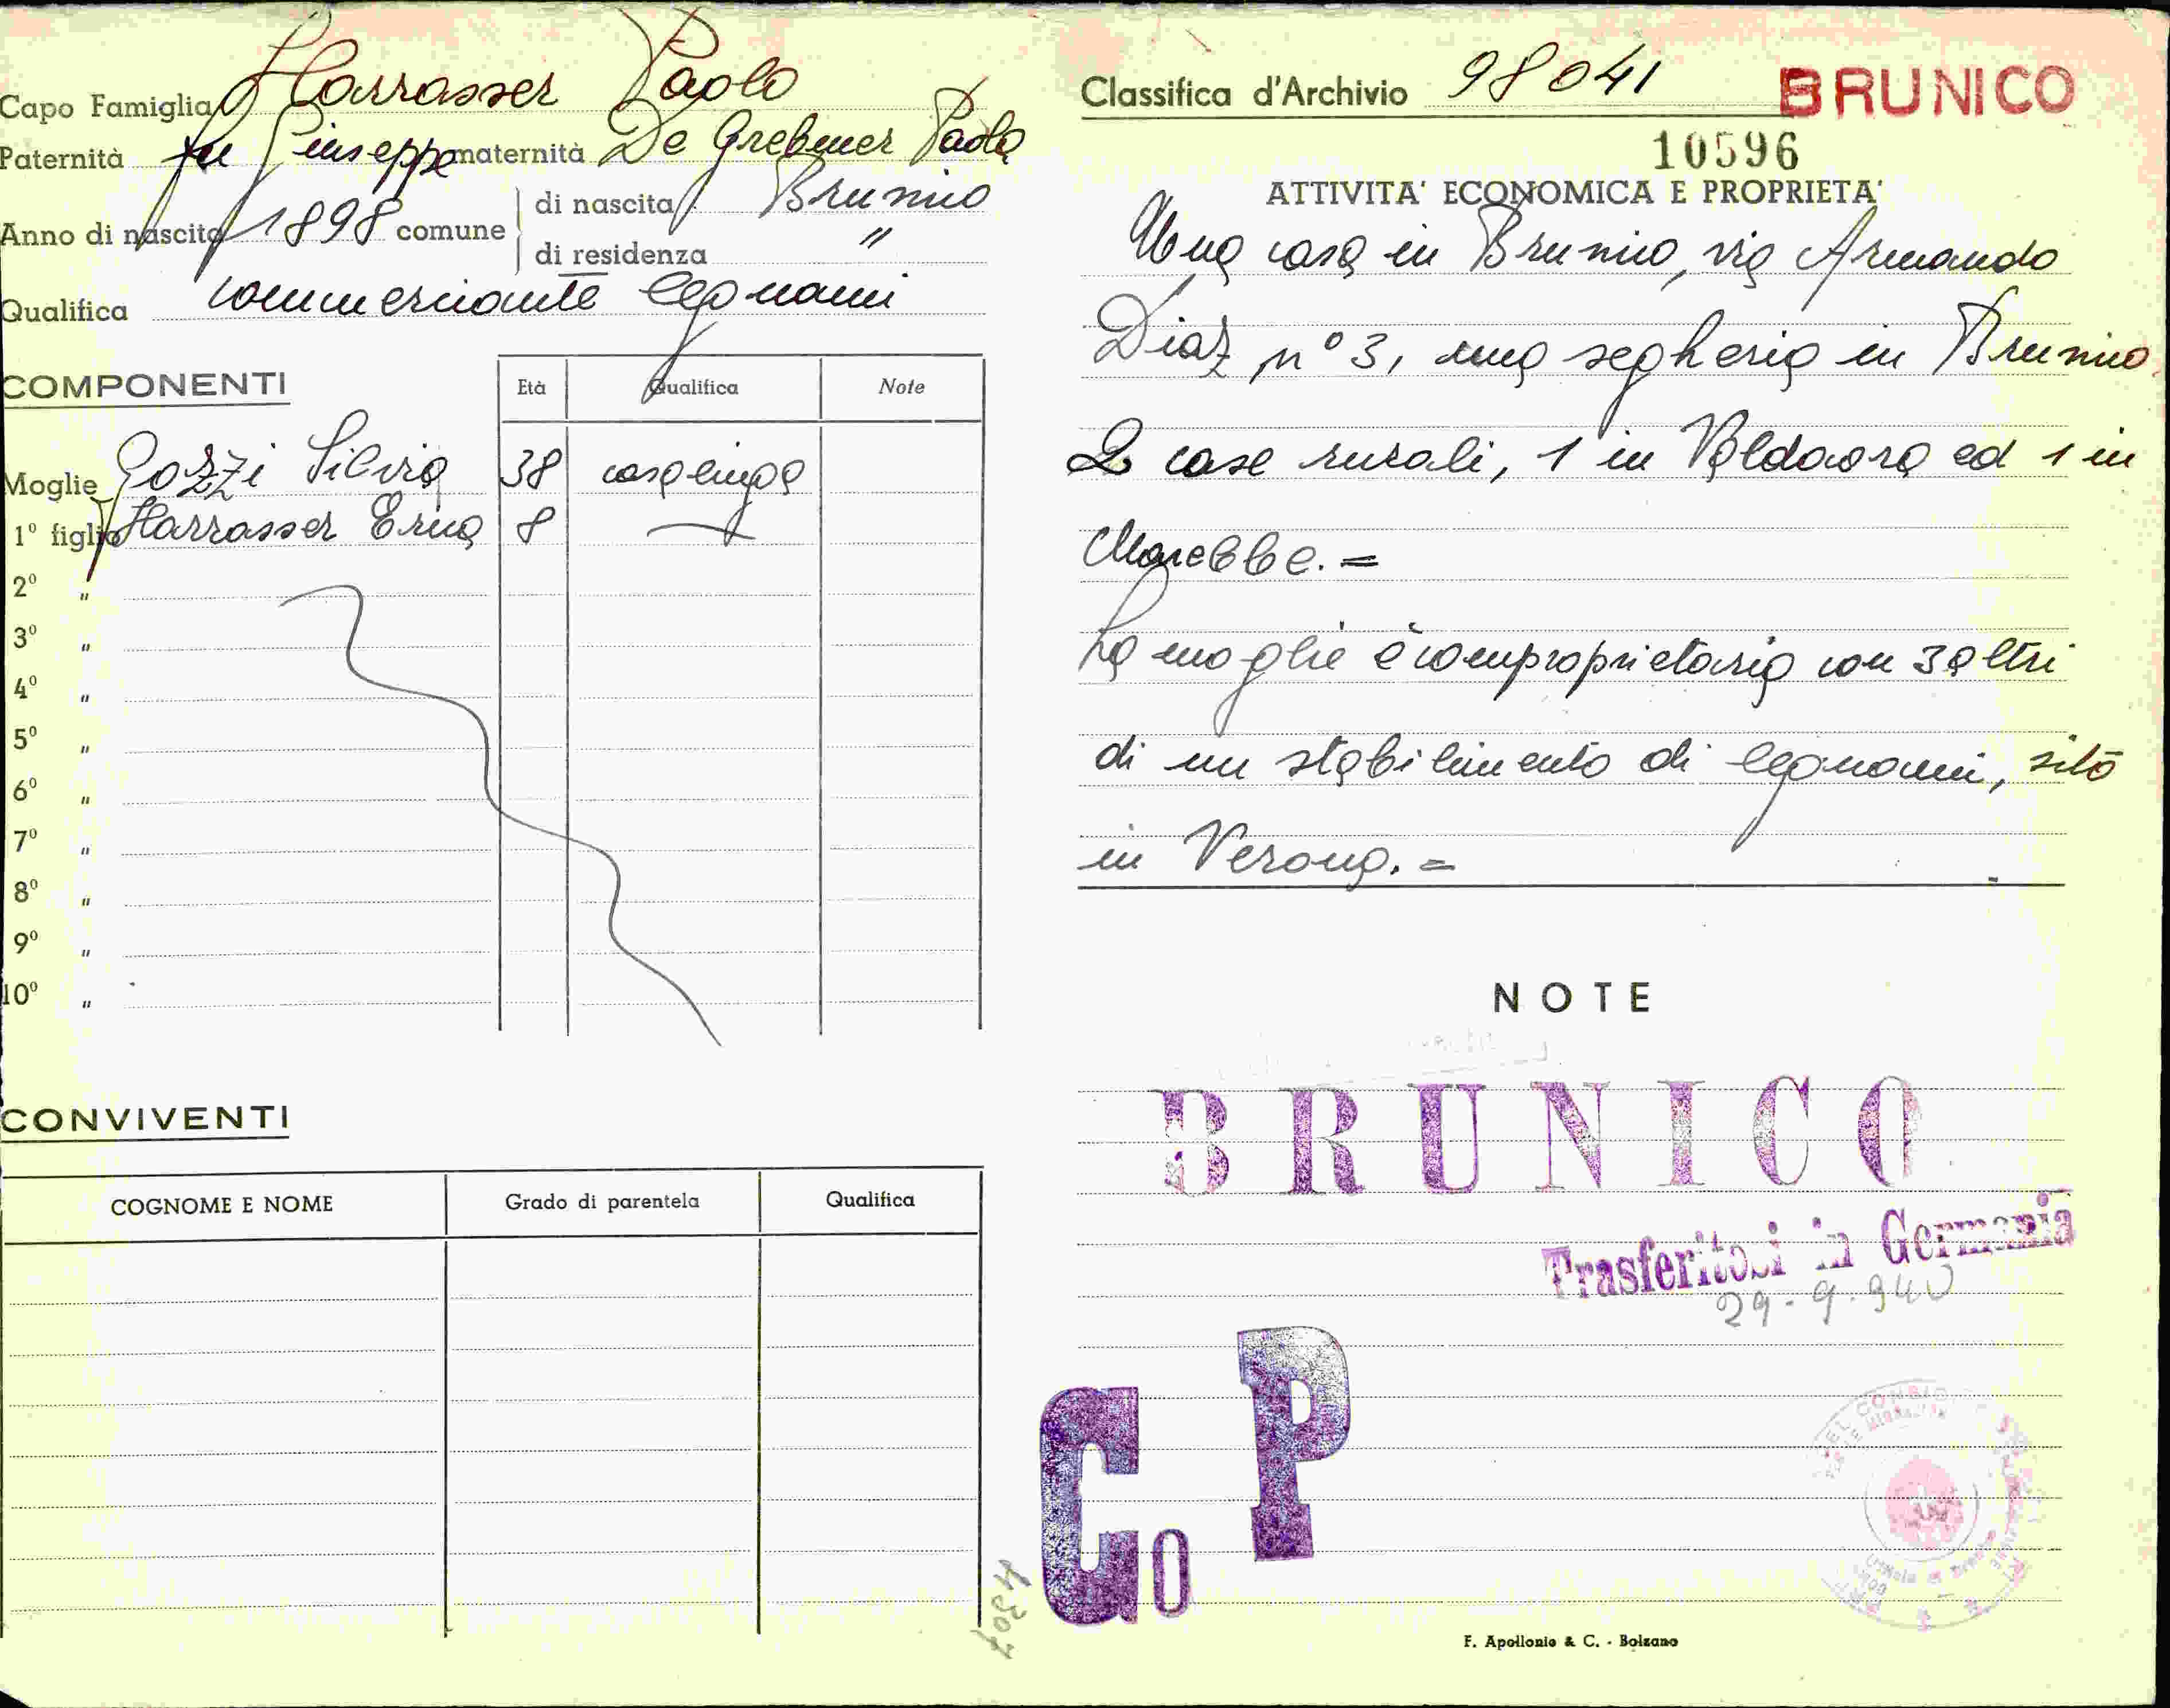 Capo Famiglia Harrasser Paolo
Paternità fu Giuseppe maternità De Grebmer Paola
Anno di nascita 1898 comune di nascita Brunico
di residenza "
Qualifica commerciante legnami
COMPONENTI Età Qualifica Note
Moglie Pozzi Silvia 38 casalinga
1° figlio Harrasser Erna 8 —
2° "
3° "
4° "
5° "
6° "
7° "
8° "
9° "
10° "
CONVIVENTI
COGNOME E NOME Grado di parentela Qualifica
4309
Classifica d'Archivio 98041 BRUNICO
10596
ATTIVITA' ECONOMICA E PROPRIETA'
Una casa in Brunico, via Armando
Diaz n° 3, una segheria in Brunico.
2 case rurali, 1 in Valdaora ed 1 in
Marebbe. =
La moglie è comproprietaria con 3 altri
di un stabilimento di legnami, sito
in Verona. =
NOTE
BRUNICO
Trasferitosi in Germania
29-9-940
Go P
F. Apollonio & C. - Bolzano